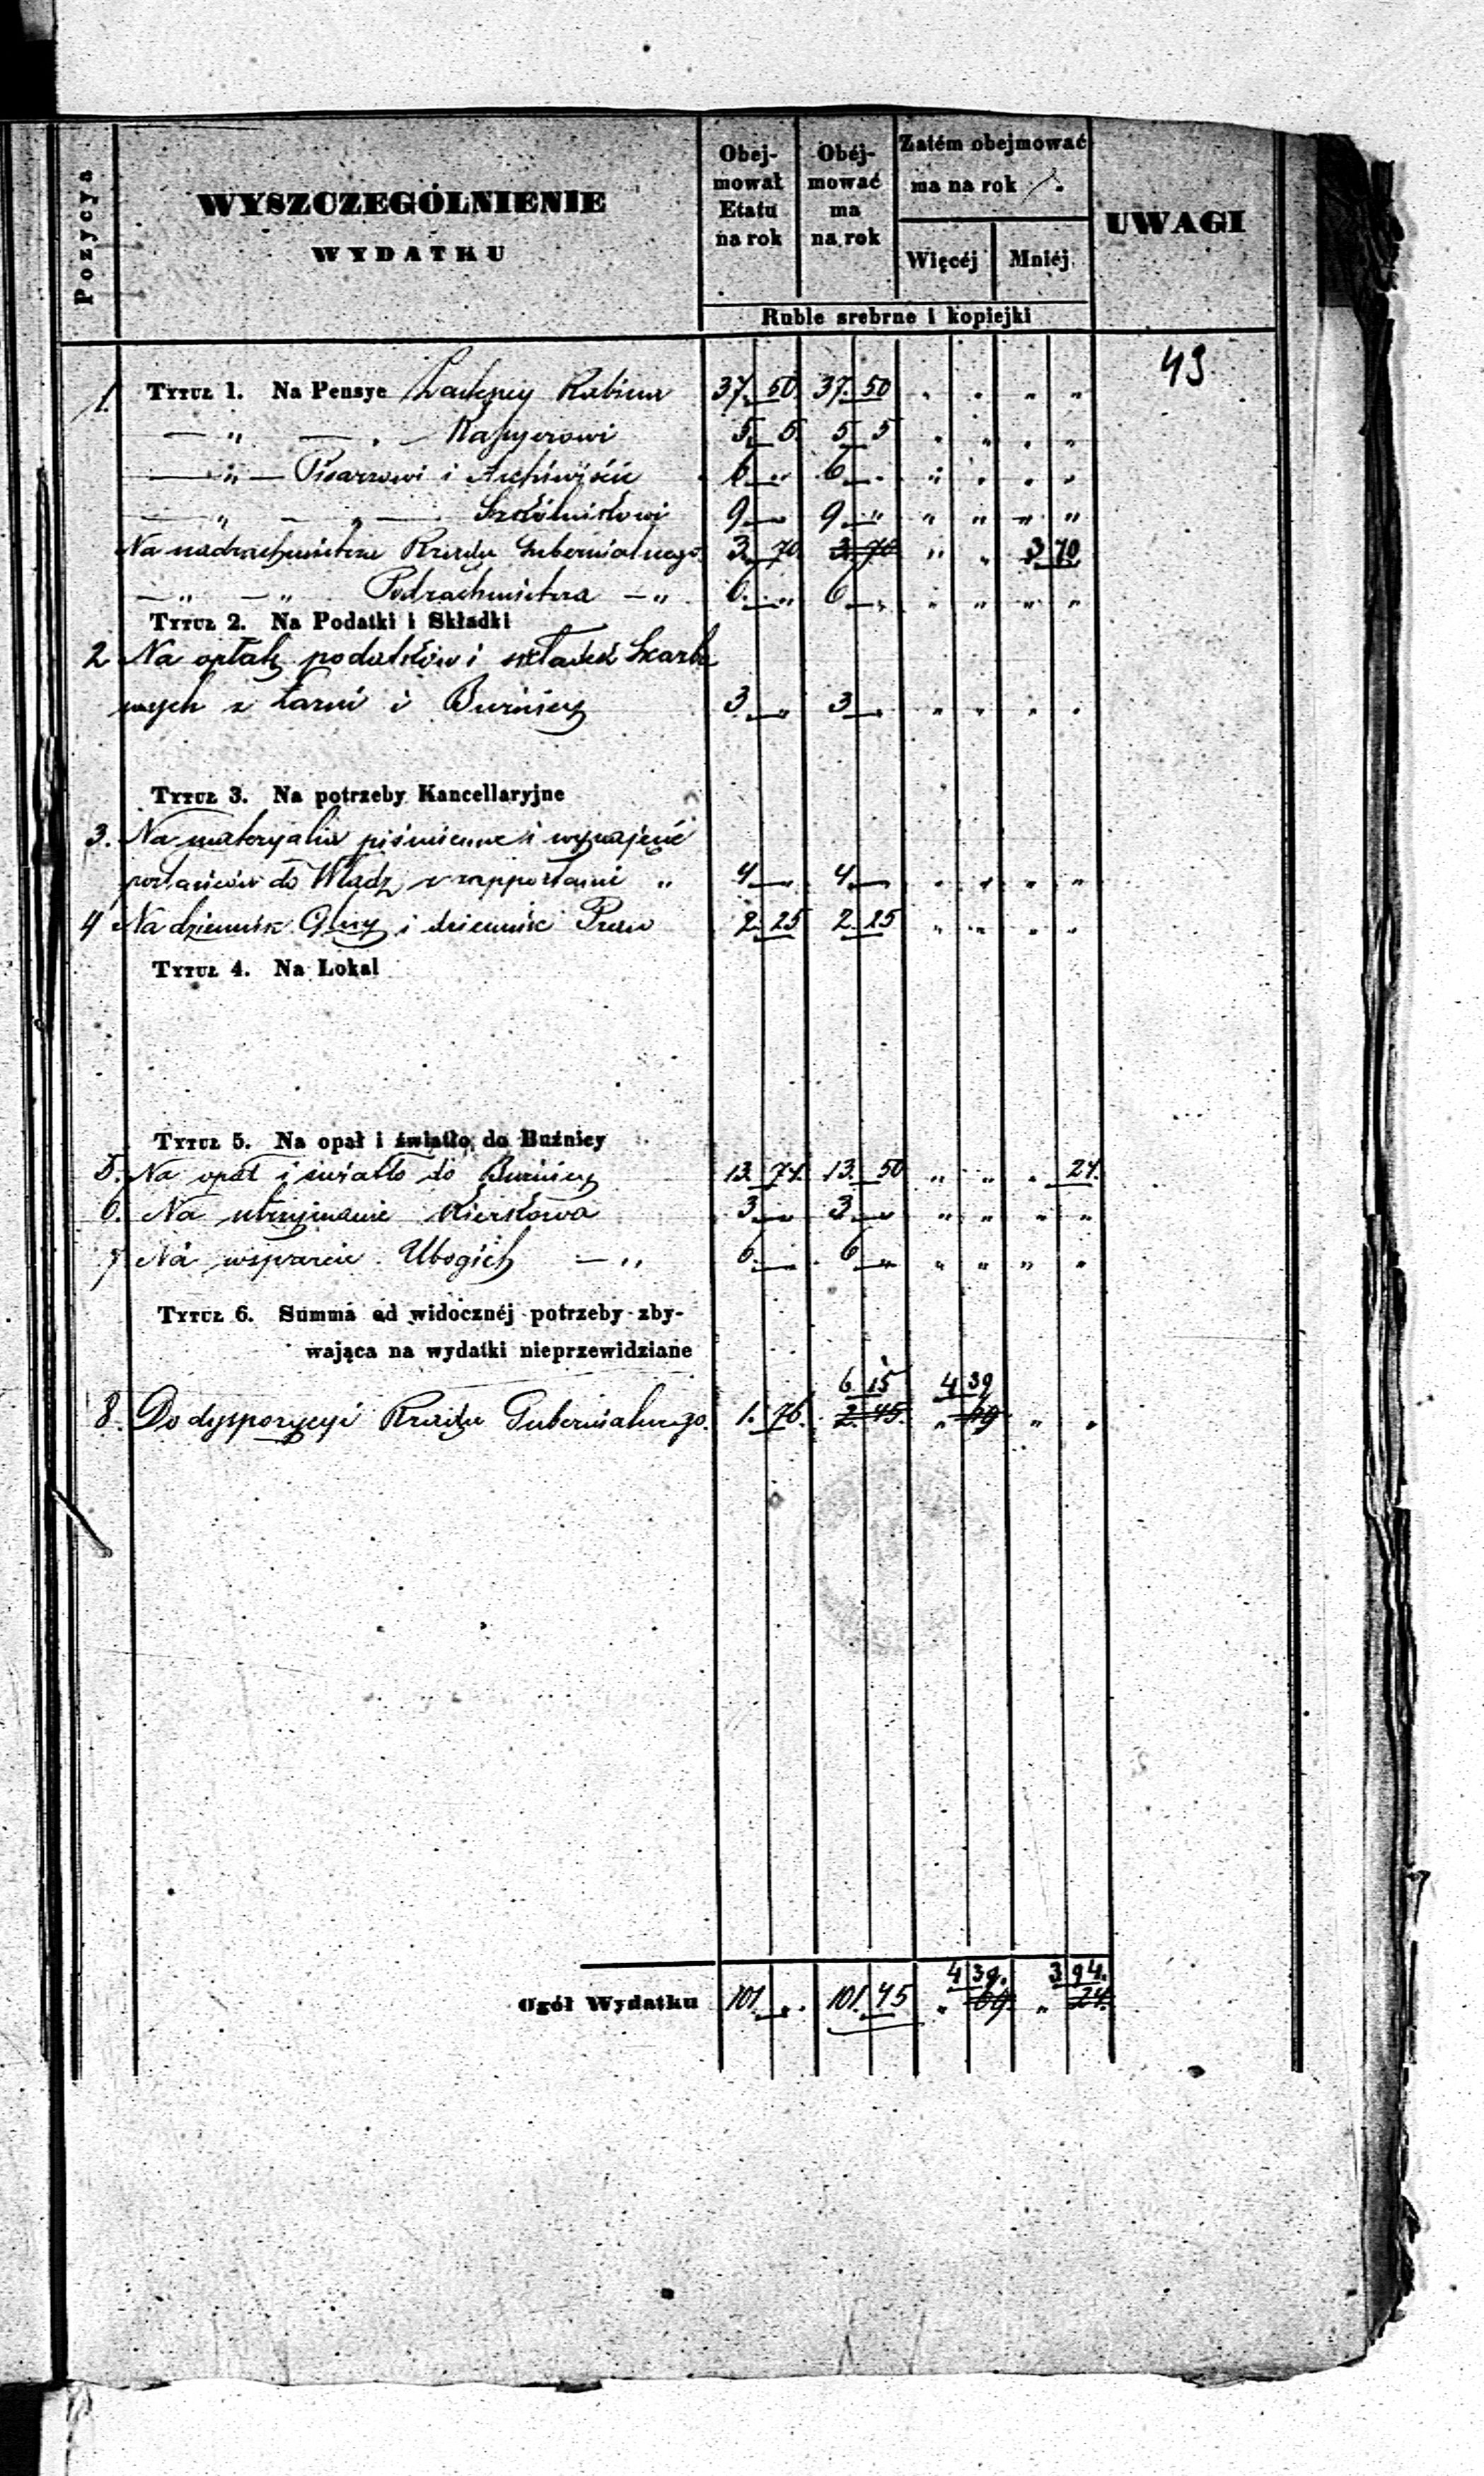 Pozycya
WYSZCZEGÓLNIENIE
WYDATKU
Obej-
mował
Etatu
na rok
Obéj-
mować
ma
na rok
Zatém obejmować
ma na rok
Więcéj
Mniéj
Ruble srebrne i kopiejki
UWAGI
43
1. Tytuł 1. Na Pensye Zastępcy Rabina 37. 50. 37. 50 " " " "
— " — " — Kassyerowi 5 5 5 5 " " " "
— " — Pisarzowi i Archiwiście 6 — " 6 — " " " " "
— " — " — Szkólnikowi 9 — " 9 — " " " " "
Na nadrachmistrza Rządu Gubernialnego 3. 70 3. 70 " " 3 70
— " — " Podrachmistrza — " 6. — " 6 — " " " " "
Tytuł 2. Na Podatki i Składki
2 Na opłatę podatków i składek Skarbo
wych z Łaźni i Buźnicy 3. — " 3 — " " " " "
Tytuł 3. Na potrzeby Kancellaryjne
3. Na materyalia piśmienne i wynajęcie
posłańców do Władz z rapportami " 4 — " 4 — " " " " "
4 Na dziennik Glny i dziennik Praw 2. 25 2. 25 " " " "
Tytuł 4. Na Lokal
Tytuł 5. Na opał i światło do Buźnicy
5. Na opał i światło do Buźnicy 13. 74. 13. 50 " " " 24.
6. Na utrzymanie Kierkowa 3 — " 3 — " " " " "
7 Na wsparcie Ubogich — " 6. — " 6 — " " " " "
Tytuł 6. Summa od widocznéj potrzeby zby-
wająca na wydatki nieprzewidziane
6 15 4 39
8. Do dyspozycyi Rządu Gubernialnego. 1. 76. 2. 45. " 69 " "
4 39. 3 94.
Ogół Wydatku 101. — " 101. 45 " 69. " 24.